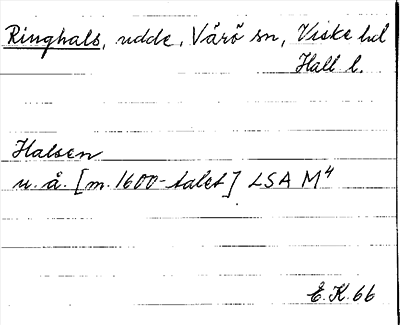 Ringhals, udde, Värö sn, Viske hd
Hall l.
Halsen
u. å. [m. 1600-talet] LSA M4
E.K. 66